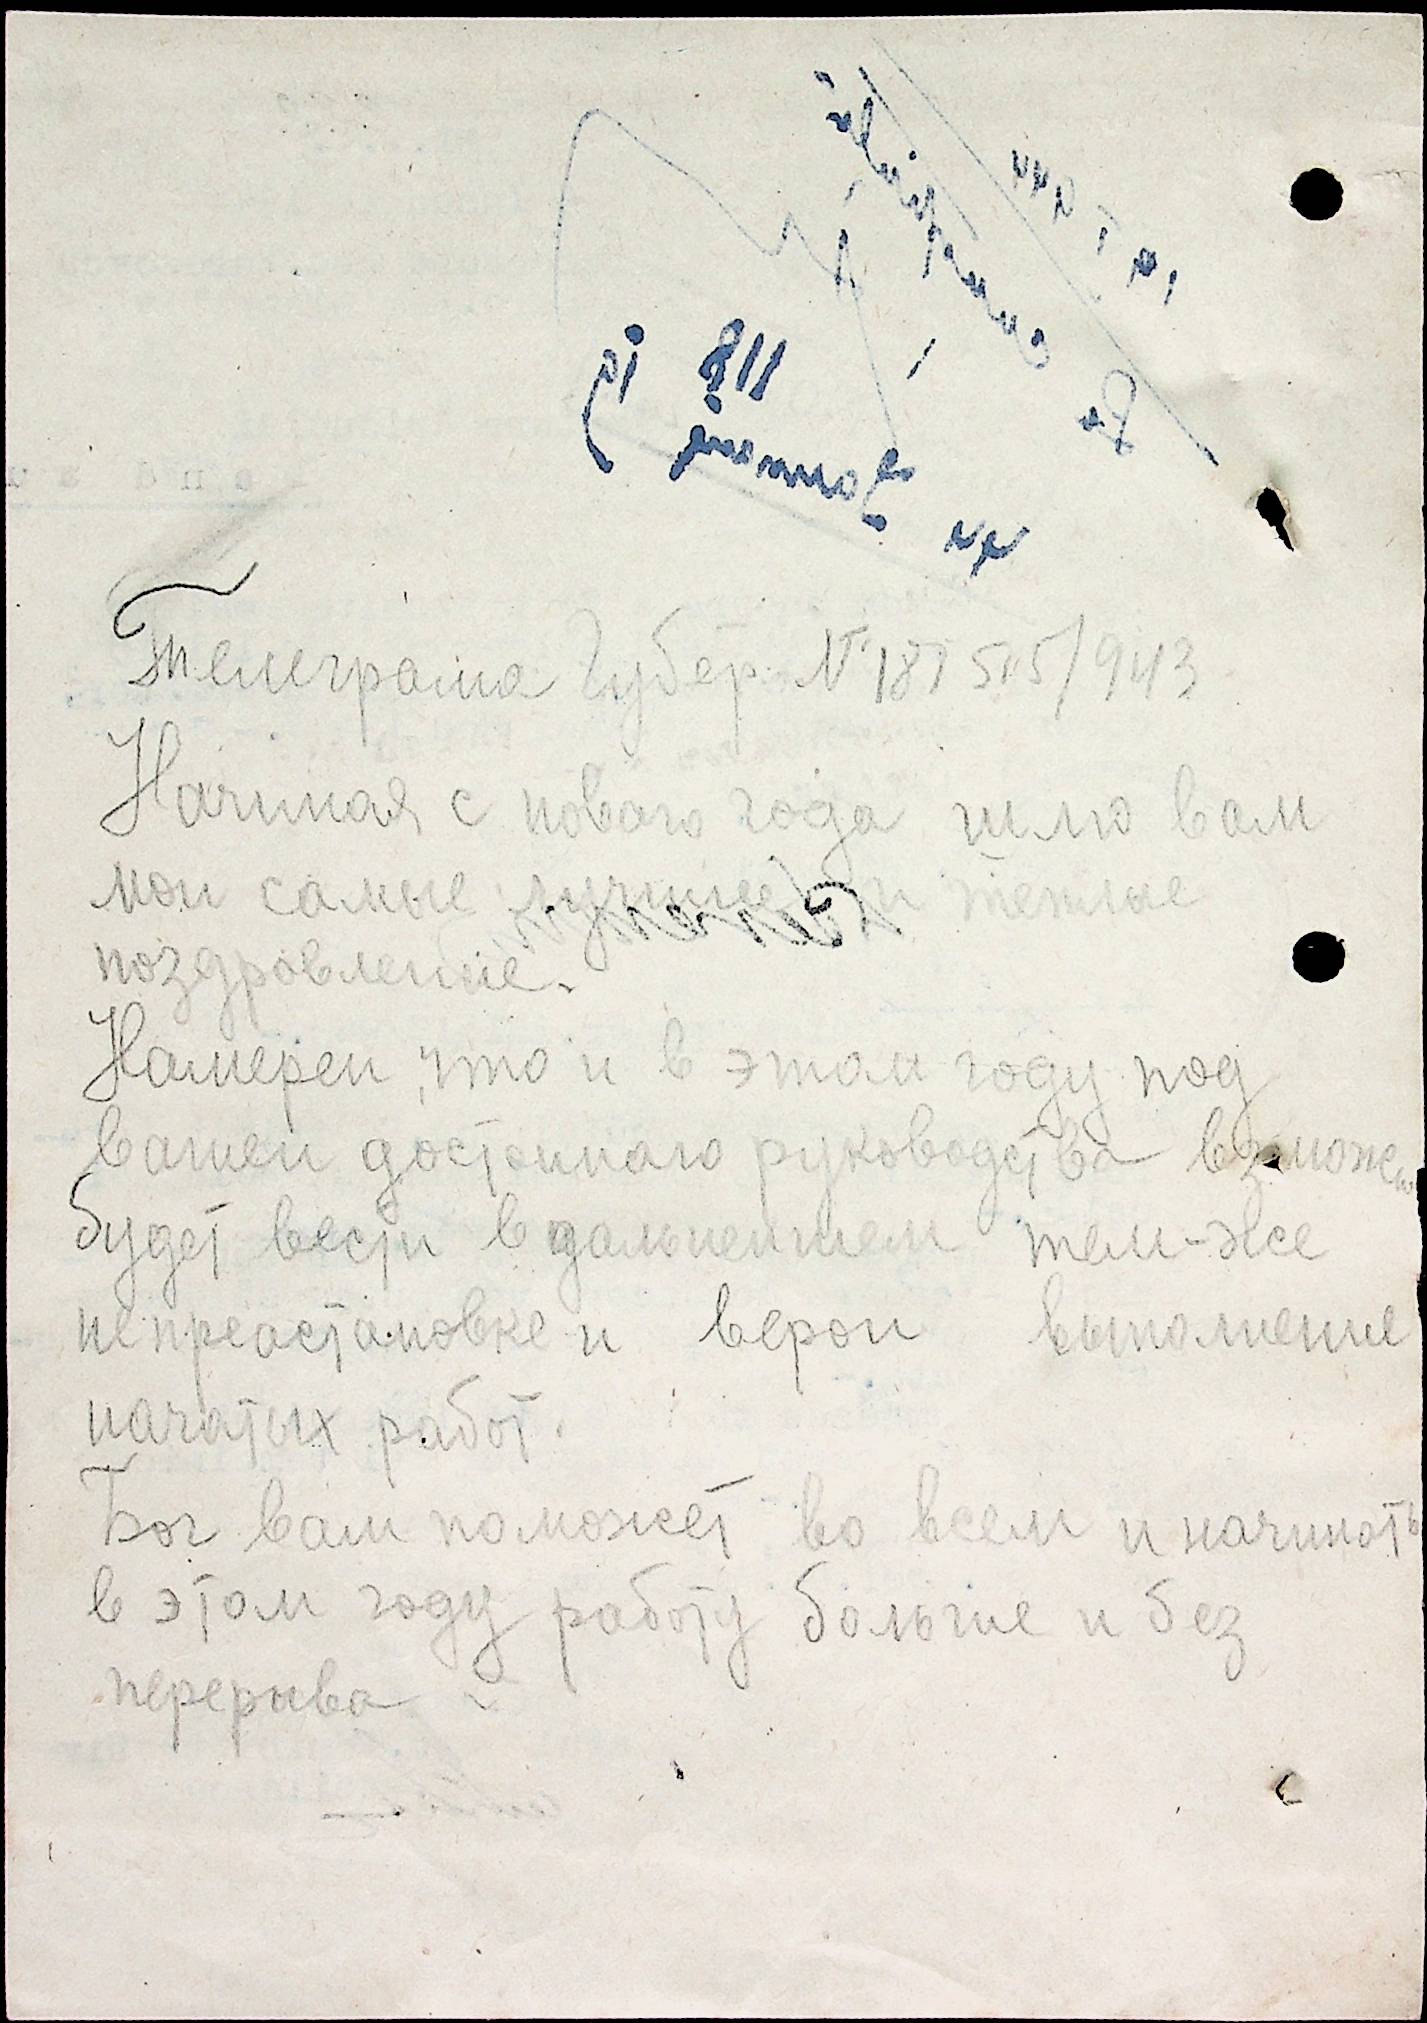 Телеграма Губер. № 187515/943
Начиная с новаго года шлю вам
мои самые лучшие и теплые
поздровление.
Намерен, что и в этом году под
вашей достойнаго руководства взможно
будет вести в дальнейшем тем-же
непреостановке и верой выполнение
начатых работ.
Бог вам поможет во всем и начинать
в этом году работу больше и без
перерыва